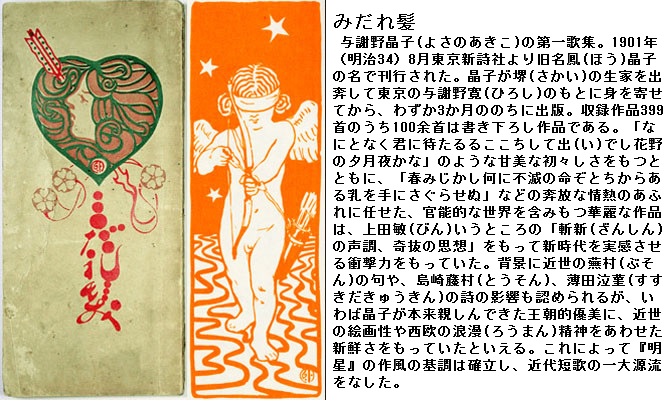 みだれ髪
みだれ髪
与謝野晶子(よさのあきこ)の第一歌集。1901年
(明治34) 8月東京新詩社より旧名鳳(ほう)晶子
の名で刊行された。晶子が堺(さかい)の生家を出
奔して東京の与謝野寛(ひろし)のもとに身を寄せ
てから、わずか3か月ののちに出版。収録作品399
首のうち100余首は書き下ろし作品である。「な
にとなく君に待たるるここちして出(い)でし花野
の夕月夜かな」のような甘美な初々しさをもつと
ともに、「春みじかし何に不滅の命ぞとちからあ
る乳を手にさぐらせぬ」などの奔放な情熱のあふ
れに任せた、官能的な世界を含みもつ華麗な作品
は、上田敏(びん)いうところの「斬新(ざんしん)
の声調、奇抜の思想」をもって新時代を実感させ
る衝撃力をもっていた。背景に近世の蕪村(ぶそ
ん)の句や、島崎藤村(とうそん)、薄田泣菫(すす
きだきゅうきん)の詩の影響も認められるが、い
わば晶子が本来親しんできた王朝的優美に、近世
の絵画性や西欧の浪漫(ろうまん)精神をあわせた
新鮮さをもっていたといえる。これによって『明
星』の作風の基調は確立し、近代短歌の一大源流
をなした。